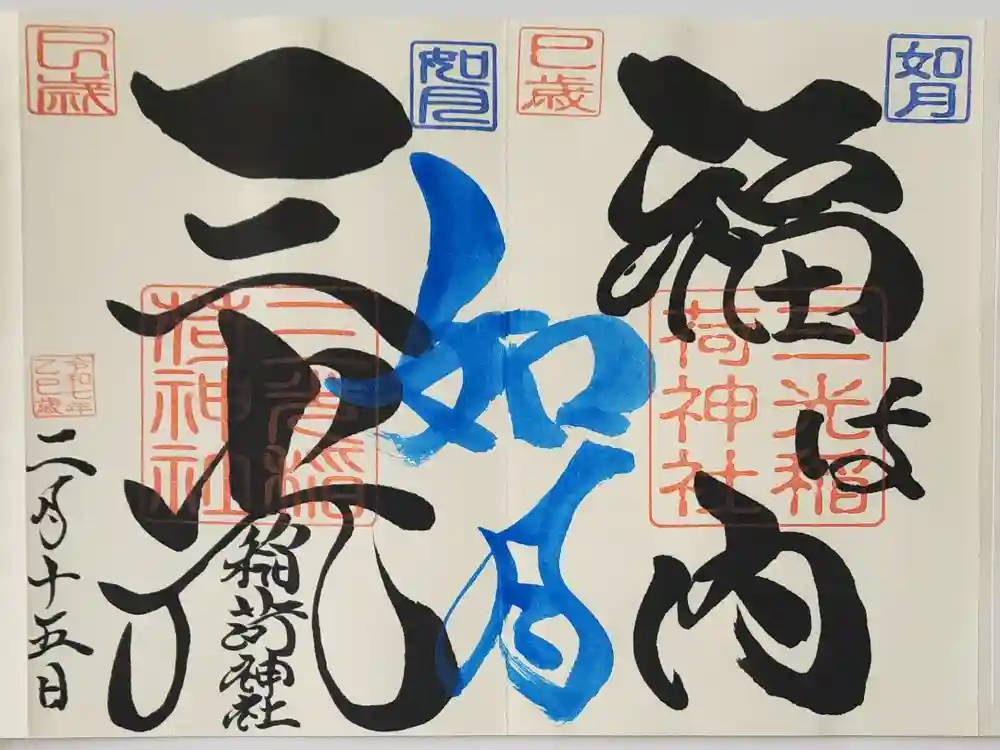 如月
巳歳
福は内
三光稲
荷神社
如月
如月
巳歳
三光
稲荷神社
三光稲
荷神社
令和七年
乙巳歳
二月十五日